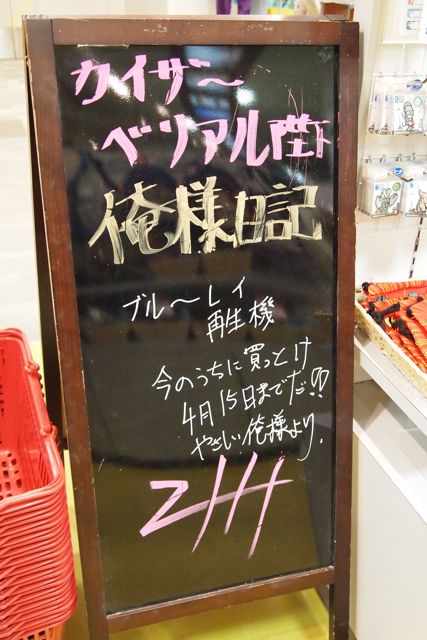 カイザ〜
ベリアル陛下
俺様日記
ブル〜レイ
再生機
今のうちに買っとけ
4月15日までだ!!
やさしい俺様より。